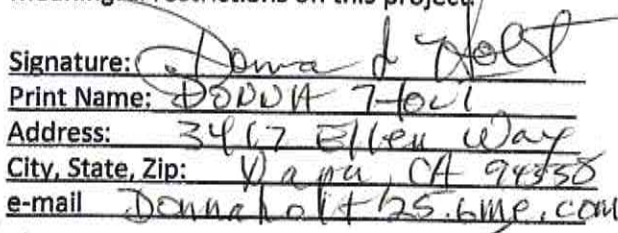 restrictions on this project.
Signature: Donna d Holt
Print Name: DONNA Holt
Address: 3417 Ellen Way
City, State, Zip: Napa, CA 94558
e-mail